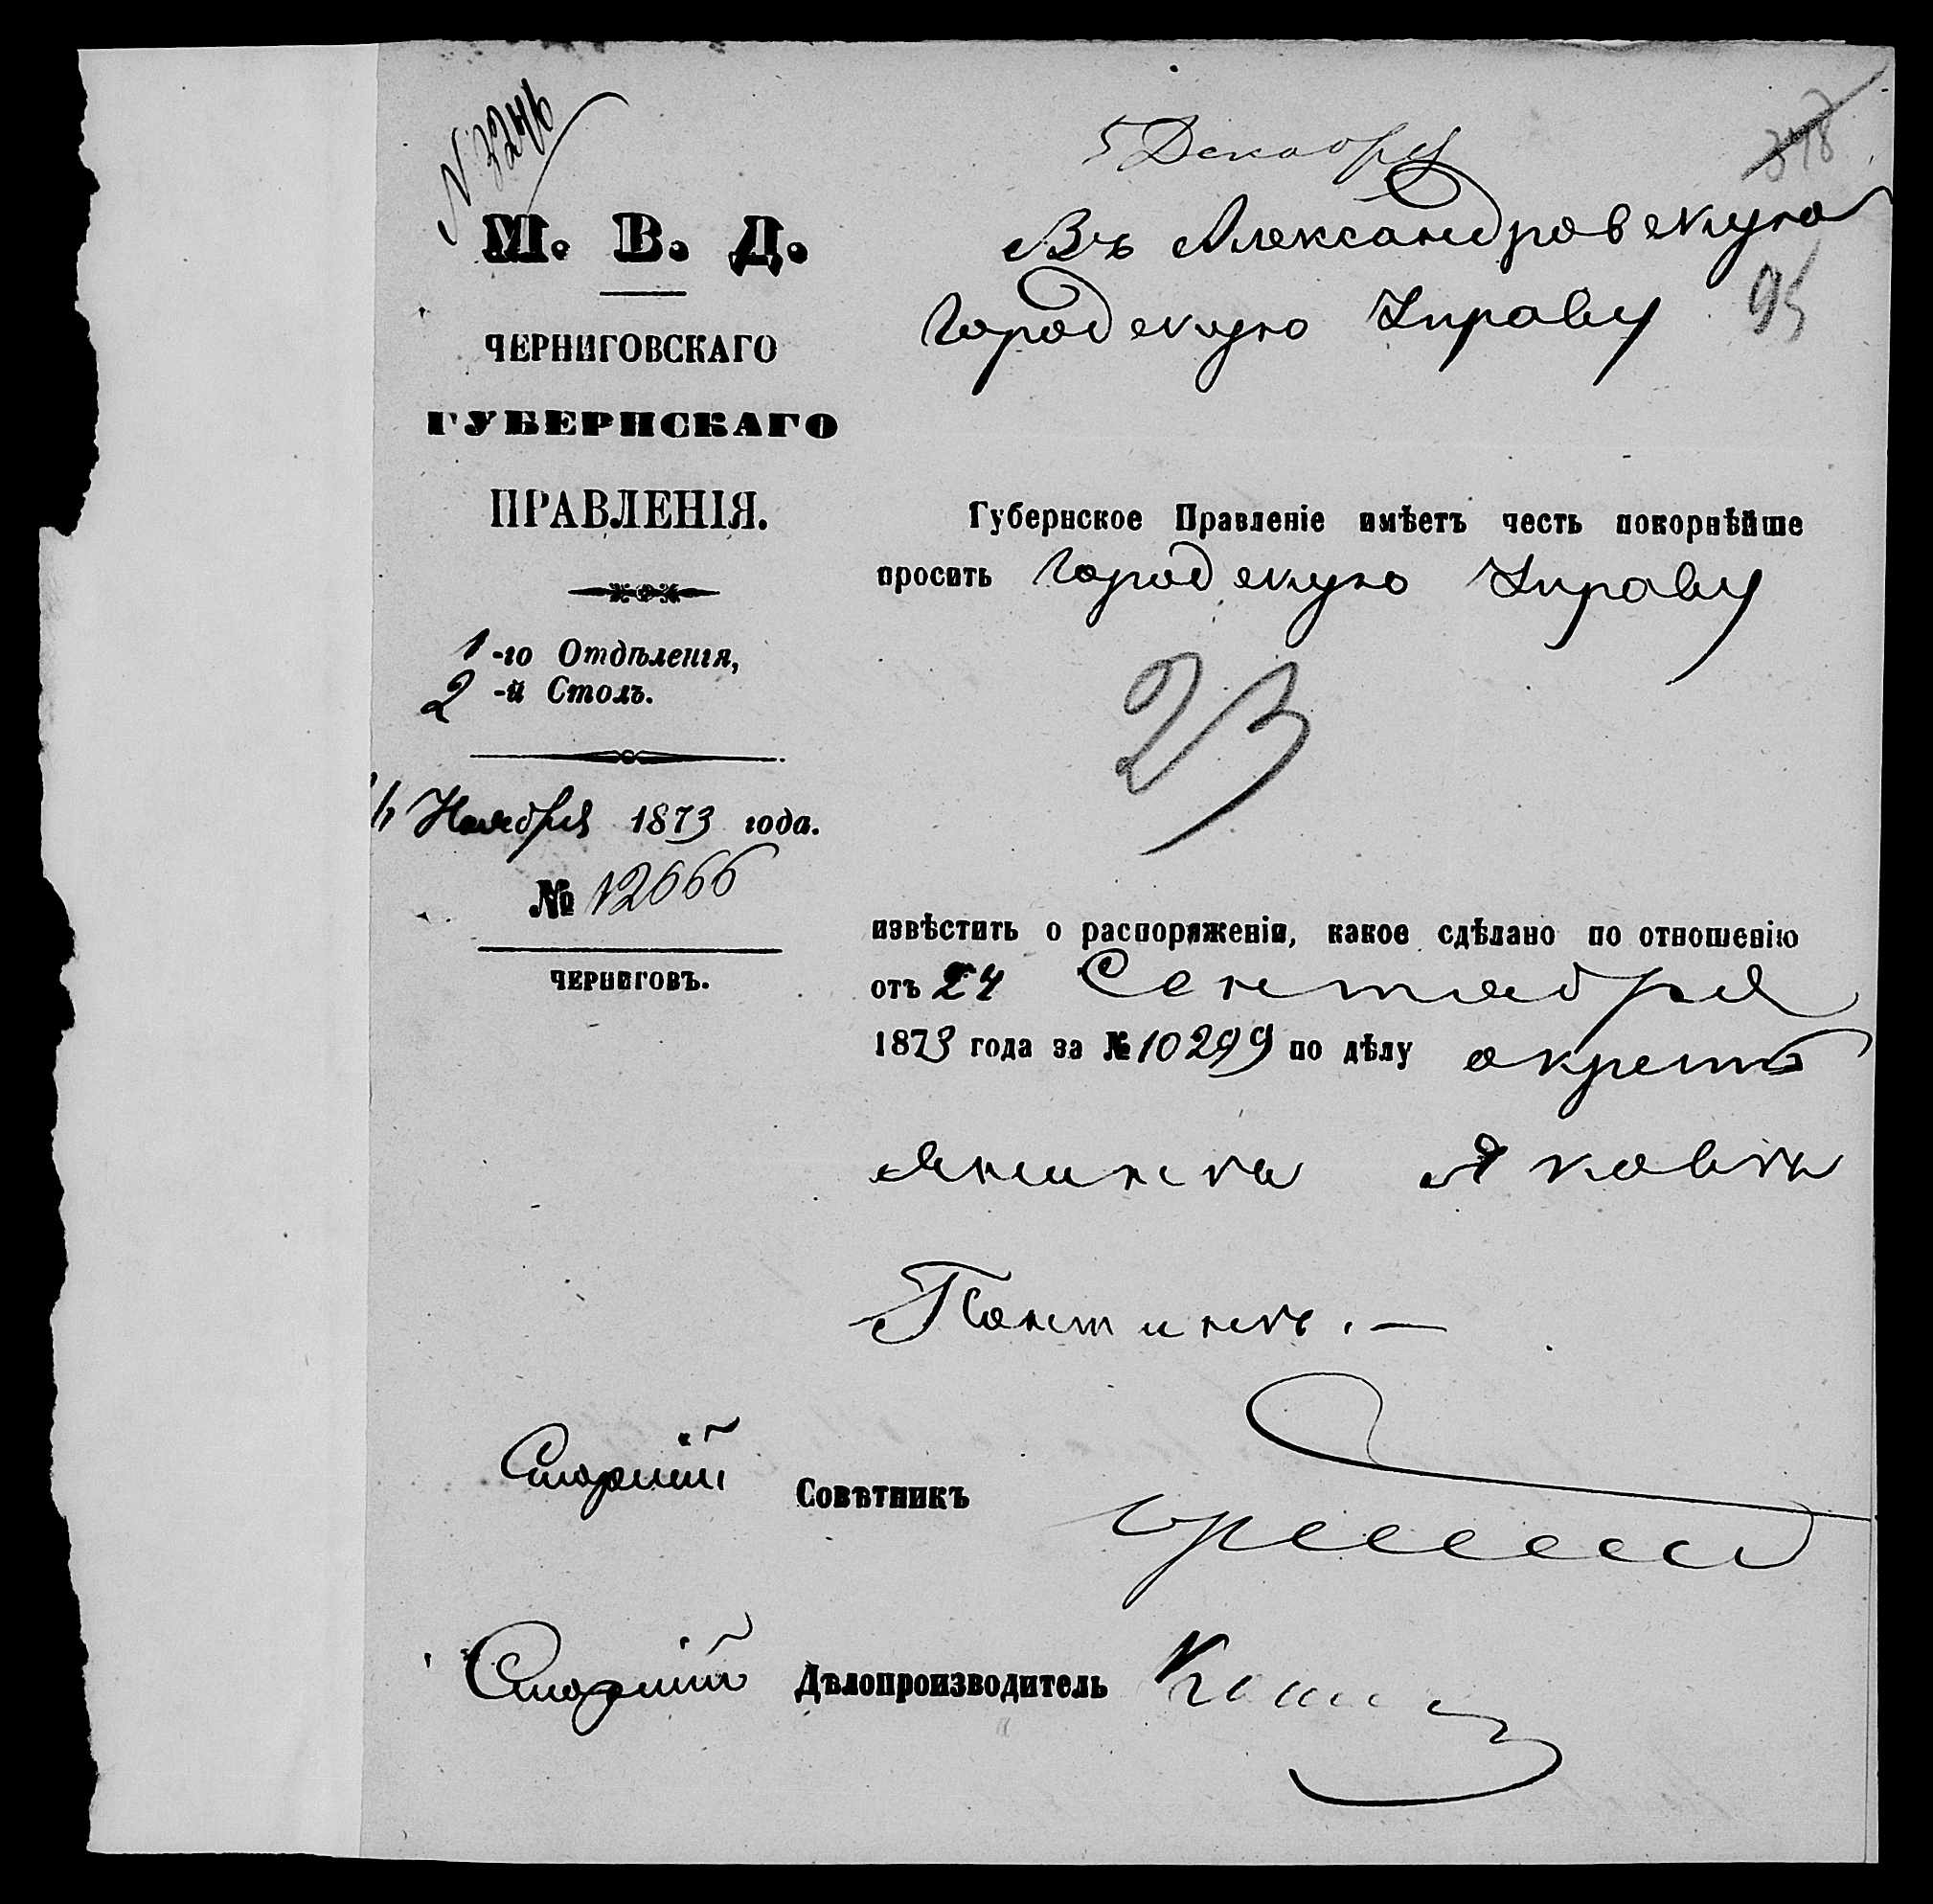 N 3246
5 Декабря
378
М. В. Д.
Въ Александровскую
95
Городскую Управу
ЧЕРНИГОВСКАГО
ГУБЕРНСКАГО
ПРАВЛЕНІЯ.
Губернское Правленіе имѣетъ честь покорнѣйше
просить Городскую Управу
1-го Отдѣленія,
2-й Столъ.
23
Ноября 1873 года.
№ 12666
извѣстить о распоряженіи, какое сдѣлано по отношенію
ЧЕРНИГОВЪ.
отъ 24 Сентября
1873 года за № 10299 по дѣлу о крест
Яковѣ
Старшій Совѣтникъ
Старшій Дѣлопроизводитель